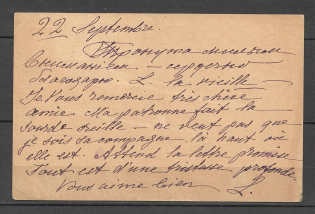 22 Septembre.
Тронута милым
вниманием — сердечно
благодарю. L. la vieille
Je Vous remercie très chère
amie. Ma patronne fait la
sourde oreille — ne veut pas que
je sois sa compagne là haut où
elle est. Attend la lettre promise
Tout est d'une tristesse profonde
Vous aime bien L.